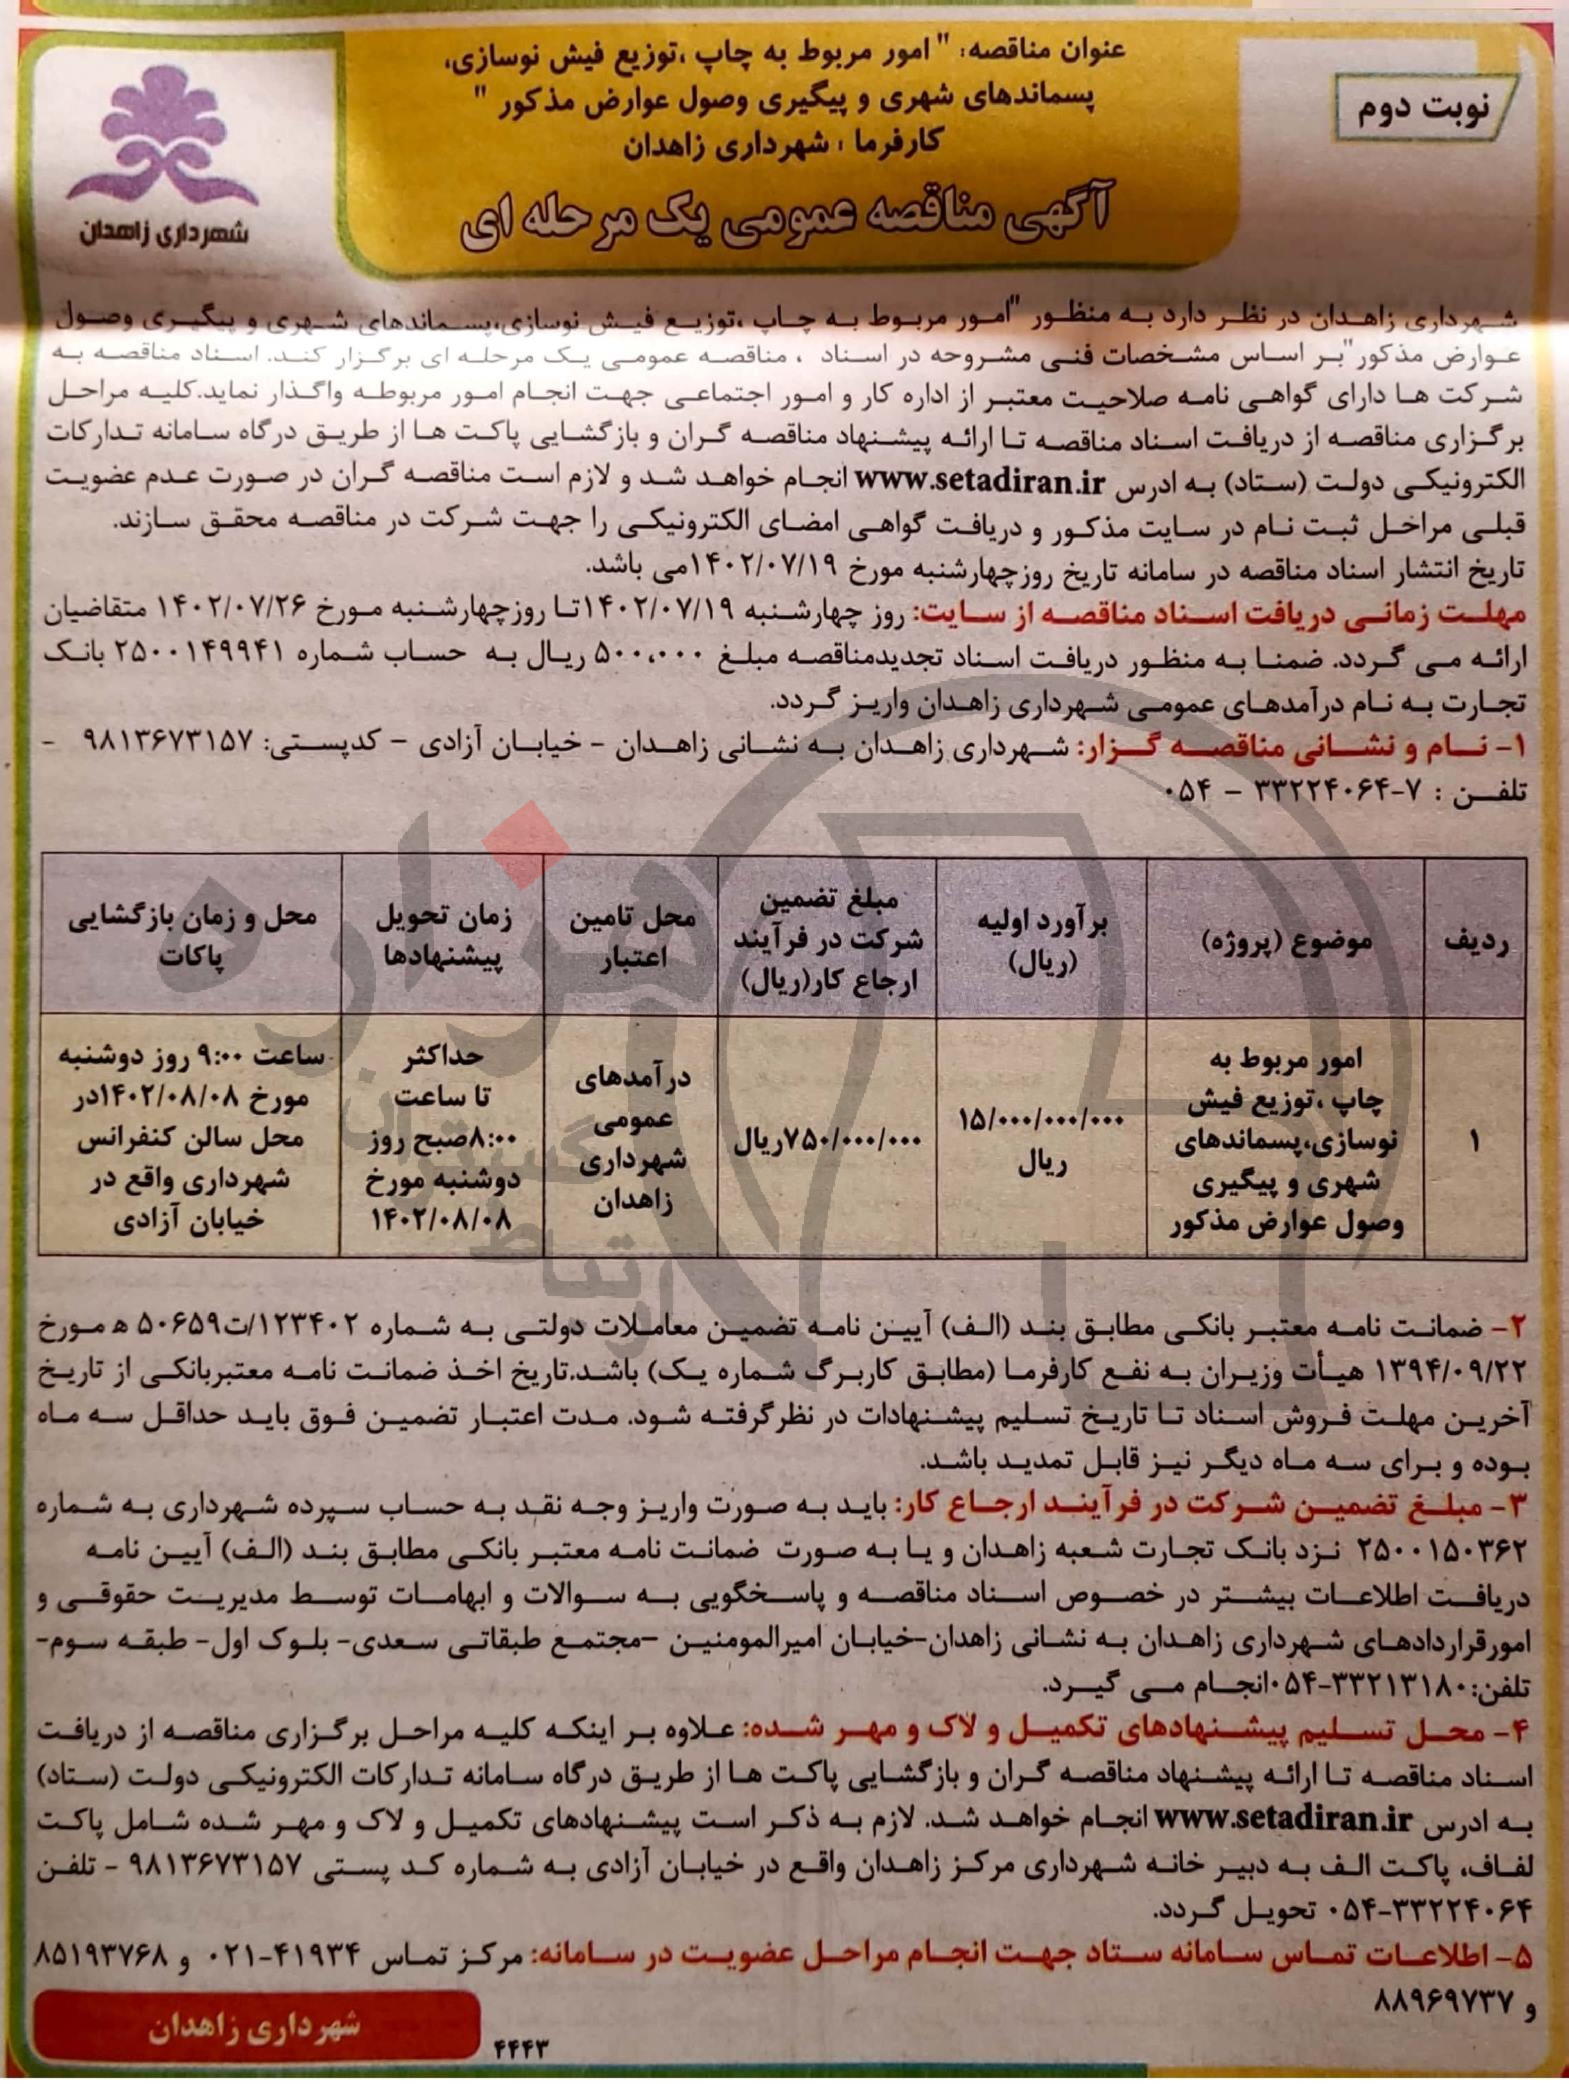 نوبت دوم
عنوان مناقصه: " امور مربوط به چاپ ،توزیع فیش نوسازی،
پسماندهای شهری و پیگیری وصول عوارض مذکور "
کارفرما : شهرداری زاهدان
آگهی مناقصه عمومی یک مرحله ای
شهرداری زاهدان
شهرداری زاهدان در نظر دارد به منظور "امور مربوط به چاپ ،توزیع فیش نوسازی،پسماندهای شهری و پیگیری وصول
عوارض مذکور"بر اساس مشخصات فنی مشروحه در اسناد ، مناقصه عمومی یک مرحله ای برگزار کند. اسناد مناقصه به
شرکت ها دارای گواهی نامه صلاحیت معتبر از اداره کار و امور اجتماعی جهت انجام امور مربوطه واگذار نماید.کلیه مراحل
برگزاری مناقصه از دریافت اسناد مناقصه تا ارائه پیشنهاد مناقصه گران و بازگشایی پاکت ها از طریق درگاه سامانه تدارکات
الکترونیکی دولت (ستاد) به ادرس www.setadiran.ir انجام خواهد شد و لازم است مناقصه گران در صورت عدم عضویت
قبلی مراخل ثبت نام در سایت مذکور و دریافت گواهی امضای الکترونیکی را جهت شرکت در مناقصه محقق سازند.
تاریخ انتشار اسناد مناقصه در سامانه تاریخ روزچهارشنبه مورخ ۱۴۰۲/۰۷/۱۹می باشد.
مهلت زمانی دریافت اسناد مناقصه از سایت: روز چهارشنبه ۱۴۰۲/۰۷/۱۹تا روزچهارشنبه مورخ ۱۴۰۲/۰۷/۲۶ متقاضیان
ارائه می گردد. ضمنا به منظور دریافت اسناد تجدیدمناقصه مبلغ ۵۰۰،۰۰۰ ریال به حساب شماره ۲۵۰۰۱۴۹۹۴۱ بانک
تجارت به نام درآمدهای عمومی شهرداری زاهدان واریز گردد.
۱- نام و نشانی مناقصه گزار: شهرداری زاهدان به نشانی زاهدان - خیابان آزادی - کدپستی: ۹۸۱۳۶۷۳۱۵۷ -
تلفن : ۷-۳۳۲۲۴۰۶۴ - ۰۵۴
ردیف
موضوع (پروژه)
برآورد اولیه
(ریال)
مبلغ تضمین
شرکت در فرآیند
ارجاع کار(ریال)
محل تامین
اعتبار
زمان تحویل
پیشنهادها
محل و زمان بازگشایی
پاکات
۱
امور مربوط به
چاپ ،توزیع فیش
نوسازی،پسماندهای
شهری و پیگیری
وصول عوارض مذکور
۱۵/۰۰۰/۰۰۰/۰۰۰
ریال
۷۵۰/۰۰۰/۰۰۰ریال
درآمدهای
عمومی
شهرداری
زاهدان
حداکثر
تا ساعت
۸:۰۰صبح روز
دوشنبه مورخ
۱۴۰۲/۰۸/۰۸
ساعت ۹:۰۰ روز دوشنبه
مورخ ۱۴۰۲/۰۸/۰۸در
محل سالن کنفرانس
شهرداری واقع در
خیابان آزادی
۲- ضمانت نامه معتبر بانکی مطابق بند (الف) آیین نامه تضمین معاملات دولتی به شماره ۱۲۳۴۰۲/ت۵۰۶۵۹ ه مورخ
۱۳۹۴/۰۹/۲۲ هیأت وزیران به نفع کارفرما (مطابق کاربرگ شماره یک) باشد.تاریخ اخذ ضمانت نامه معتبربانکی از تاریخ
آخرین مهلت فروش اسناد تا تاریخ تسلیم پیشنهادات در نظرگرفته شود. مدت اعتبار تضمین فوق باید حداقل سه ماه
بوده و برای سه ماه دیگر نیز قابل تمدید باشد.
۳- مبلغ تضمین شرکت در فرآیند ارجاع کار: باید به صورت واریز وجه نقد به حساب سپرده شهرداری به شماره
۲۵۰۰۱۵۰۳۶۲ نزد بانک تجارت شعبه زاهدان و یا به صورت ضمانت نامه معتبر بانکی مطابق بند (الف) آیین نامه
دریافت اطلاعات بیشتر در خصوص اسناد مناقصه و پاسخگویی به سوالات و ابهامات توسط مدیریت حقوقی و
امورقراردادهای شهرداری زاهدان به نشانی زاهدان-خیابان امیرالمومنین -مجتمع طبقاتی سعدی- بلوک اول- طبقه سوم-
تلفن:۳۳۲۱۳۱۸۰-۰۵۴انجام می گیرد.
۴- محل تسلیم پیشنهادهای تکمیل و لاک و مهر شده: علاوه بر اینکه کلیه مراحل برگزاری مناقصه از دریافت
اسناد مناقصه تا ارائه پیشنهاد مناقصه گران و بازگشایی پاکت ها از طریق درگاه سامانه تدارکات الکترونیکی دولت (ستاد)
به ادرس www.setadiran.ir انجام خواهد شد. لازم به ذکر است پیشنهادهای تکمیل و لاک و مهر شده شامل پاکت
لفاف، پاکت الف به دبیر خانه شهرداری مرکز زاهدان واقع در خیابان آزادی به شماره کد پستی ۹۸۱۳۶۷۳۱۵۷ - تلفن
۳۳۲۲۴۰۶۴-۰۵۴ تحویل گردد.
۵- اطلاعات تماس سامانه ستاد جهت انجام مراحل عضویت در سامانه: مرکز تماس ۴۱۹۳۴-۰۲۱ و ۸۵۱۹۳۷۶۸
و ۸۸۹۶۹۷۳۷
۴۴۴۳
شهرداری زاهدان
هزاره
ارتباط گستران